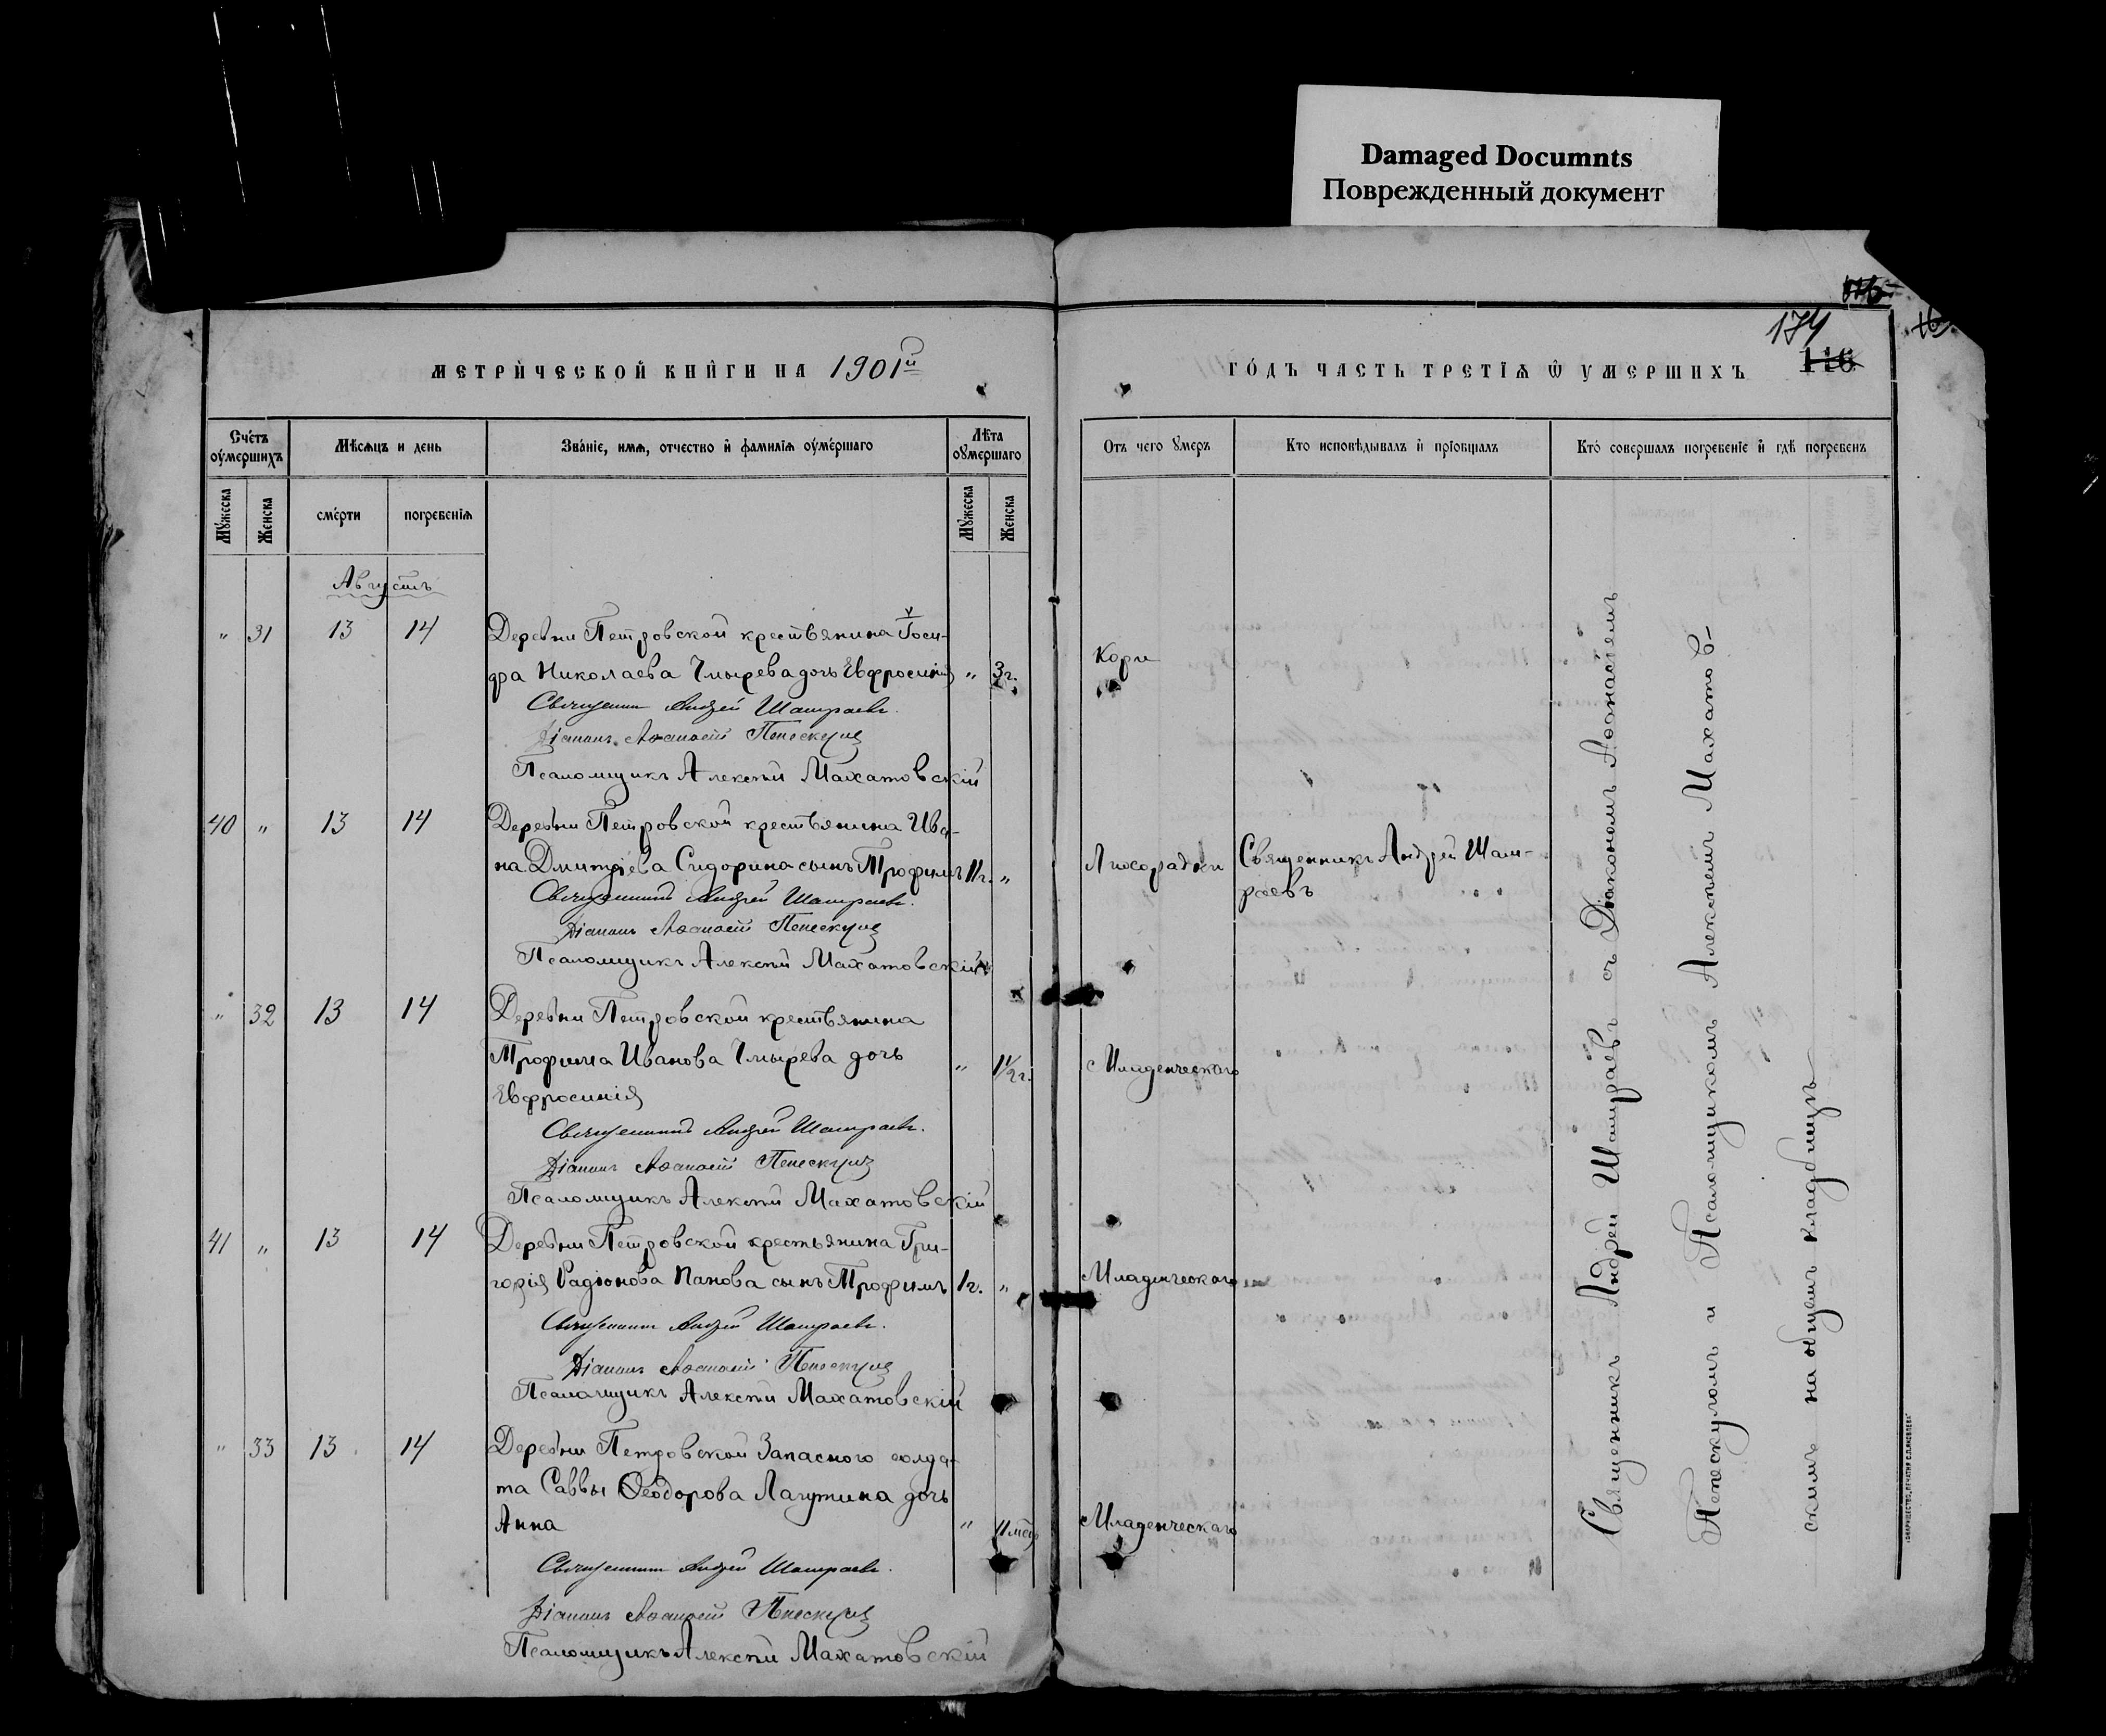 Damaged Documnts
Поврежденный документ
174
116
МЕТРИЧЕСКОЙ КНИГИ НА 1901й
ГОДЪ ЧАСТЬ ТРЕТІѦ Ѿ УМЕРШИХЪ
Счетъ оумершихъ
Мѣсѧцъ и день
Званіе, имѧ, отчество и фамиліѧ оумершаго
Лѣта оумершаго
Отъ чего умеръ
Кто исповѣдывалъ и пріобщалъ
Кто совершалъ погребеніе и гдѣ погребенъ
Мужеска
Женска
смерти
погребеніѧ
Мужеска
Женска
Августъ
" 31 13 14 Деревни Петровской крестьянина Іоси-
дра Николаева Чмырева дочь Евфросинія " 3г. Кори
Священникъ Андрей Шатраевъ.
Діаконъ Аѳанасій Пепескулъ
Псаломщикъ Алексѣй Махатовскій
40 " 13 14 Деревни Петровской крестьянина Ива-
на Дмитріева Сидорина сынъ Трофимъ 11г. " Лихорадки Священникъ Андрей Шат-
раевъ
Священникъ Андрей Шатраевъ.
Діаконъ Аѳанасій Пепескулъ
Псаломщикъ Алексѣй Махатовскій
" 32 13 14 Деревни Петровской крестьянина
Трофима Иванова Чмырева дочь " 1½г. Младенческаго
Евфросинія
Священникъ Андрей Шатраевъ.
Діаконъ Аѳанасій Пепескулъ
Псаломщикъ Алексѣй Махатовскій
41 " 13 14 Деревни Петровской крестьянина Гри-
горія Радіонова Панова сынъ Трофимъ 1г. " Младенческаго
Священникъ Андрей Шатраевъ.
Діаконъ Аѳанасій Пепескулъ
Псаломщикъ Алексѣй Махатовскій
" 33 13 14 Деревни Петровской Запаснаго солда-
та Саввы Ѳеодорова Лагутина дочь
Анна " 11 мѣс. Младенческаго
Священникъ Андрей Шатраевъ.
Діаконъ Аѳанасій Пепескулъ
Псаломщикъ Алексѣй Махатовскій
Священникъ Андрей Шатраевъ съ Діакономъ Аѳанасіемъ
Пепескуломъ и Псаломщикомъ Алексѣемъ Махатов-
скимъ на общемъ кладбищѣ